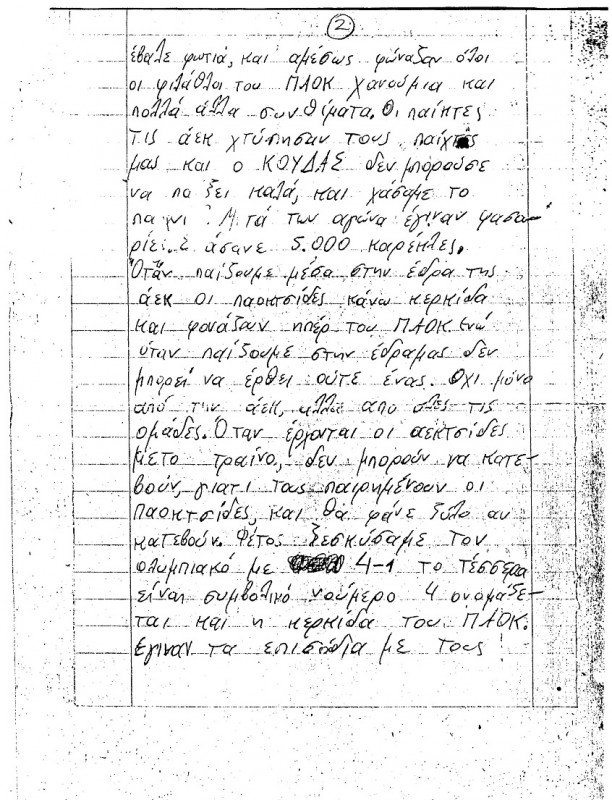 2
έβαλε φωτιά, και αμέσως φώναξαν όλοι
οι φιλάθλοι του ΠΑΟΚ χανούμια και
πολλά άλλα συνθήματα. Οι παίκτες
τις άεκ χτύπησαν τους παίχτες
μας και ο ΚΟΥΔΑΣ δεν μπορούσε
να παίξει καλά, και χάσαμε το
παιχνι Μετά των αγώνα έγιναν φασα-
ρίες. άσανε 5.000 καρέκλες.
Όταν παίζουμε μέσα στην έδρα της
άεκ οι παοκτσίδες κάνω κερκίδα
και φονάζων ηπέρ του ΠΑΟΚ ενώ
όταν παίζουμε στην έδραμας δεν
μπορεί να έρθει ούτε ένας. Όχι μόνο
από την άεκ, αλλά απο όλες τις
ομάδες. Όταν έρχονται οι αεκτσίδες
μετο τραίνο, δεν μπορούν να κατε-
βούν, γιατι τους παιρημένουν οι
Παοκτσίδες, και θα φάνε ξύλο αν
κατεβούν. Φέτος ξεσκύσαμε τον
ολυμπιακό με 4-1 το τέσσερα
είναι συμβολικό νούμερο 4 ονομάζε-
ται και η κερκίδα του ΠΑΟΚ.
Έγιναν τα επισώδια με τους